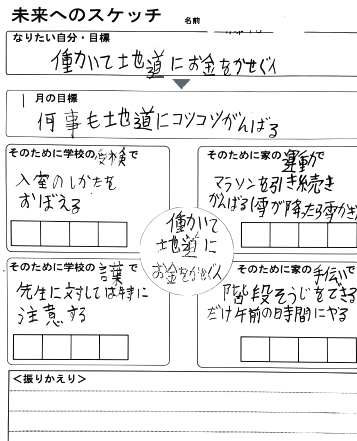 未来へのスケッチ
名前
なりたい自分・目標
働いて地道にお金をかせぐ人
1月の目標
何事も地道にコツコツがんばる
そのために学校の受検で
入室のしかたを
おぼえる
そのために家の運動で
マラソンを引き続き
がんばる(雪が降ったら雪かき
働いて
地道に
お金をかせぐ人
そのために学校の言葉で
先生に対しては特に
注意する
そのために家の手伝いで
階段そうじをできる
だけ午前の時間にやる
<振りかえり>